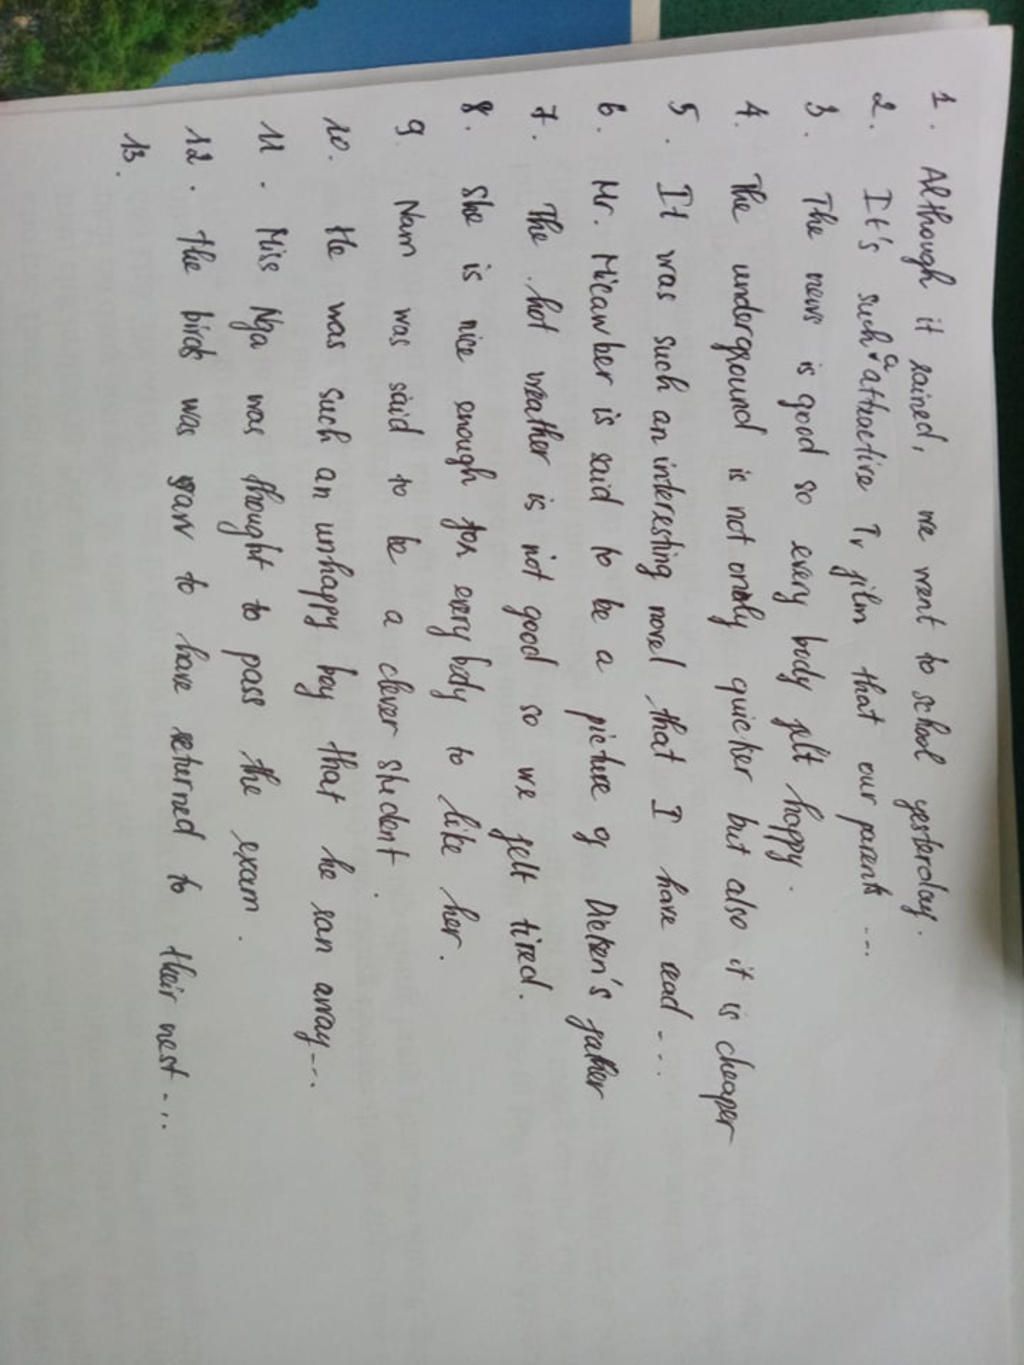 1. Although it rained, we went to school yesterday.
2. It's such a attractive TV film that our parents ...
3. The news is good so every body felt happy.
4. The underground is not only quicker but also it is cheaper
5. It was such an interesting novel that I have read ....
6. Mr. Micawber is said to be a picture of Dicken's father
7. The hot weather is not good so we felt tired.
8. She is nice enough for every body to like her.
9. Nam was said to be a clever student.
10. He was such an unhappy boy that he ran away ...
11. Miss Nga was thought to pass the exam.
12. The birds was saw to have returned to their nest ...
13.